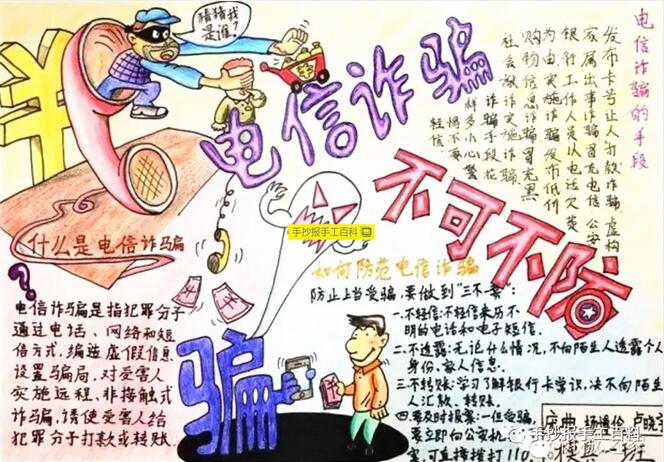 猜猜我
是谁?
电信诈骗
不可不防
电信诈骗的手段
家属出事诈骗冒充电信公安
银行工作人员以电话欠费
为由.实施诈骗发布低价
购物信息诈骗冒充黑
社会敲诈实施诈骗
诈骗手段花
样多小心警
惕不要
轻信
手抄报手工百科
什么是电信诈骗
?
电信诈骗是指犯罪分子
通过电话、网络和短
信方式,编造虚假信息,
设置骗局,对受害人
实施远程、非接触式
诈骗,诱使受害人给
犯罪分子打款或转账.
骗
如何防范电信诈骗
防止上当受骗,要做到"三不一要":
一.不轻信:不轻信来历不
明的电话和电子短信.
二.不透露:无论什么情况,不向陌生人透露个人
身份、家人信息.
三.不转账:学习了解银行卡常识,决不向陌生
人汇款、转账.
四.要及时报案:一但受骗,
要立即向公安机
案,可直接拨打110.
手抄报手工百科